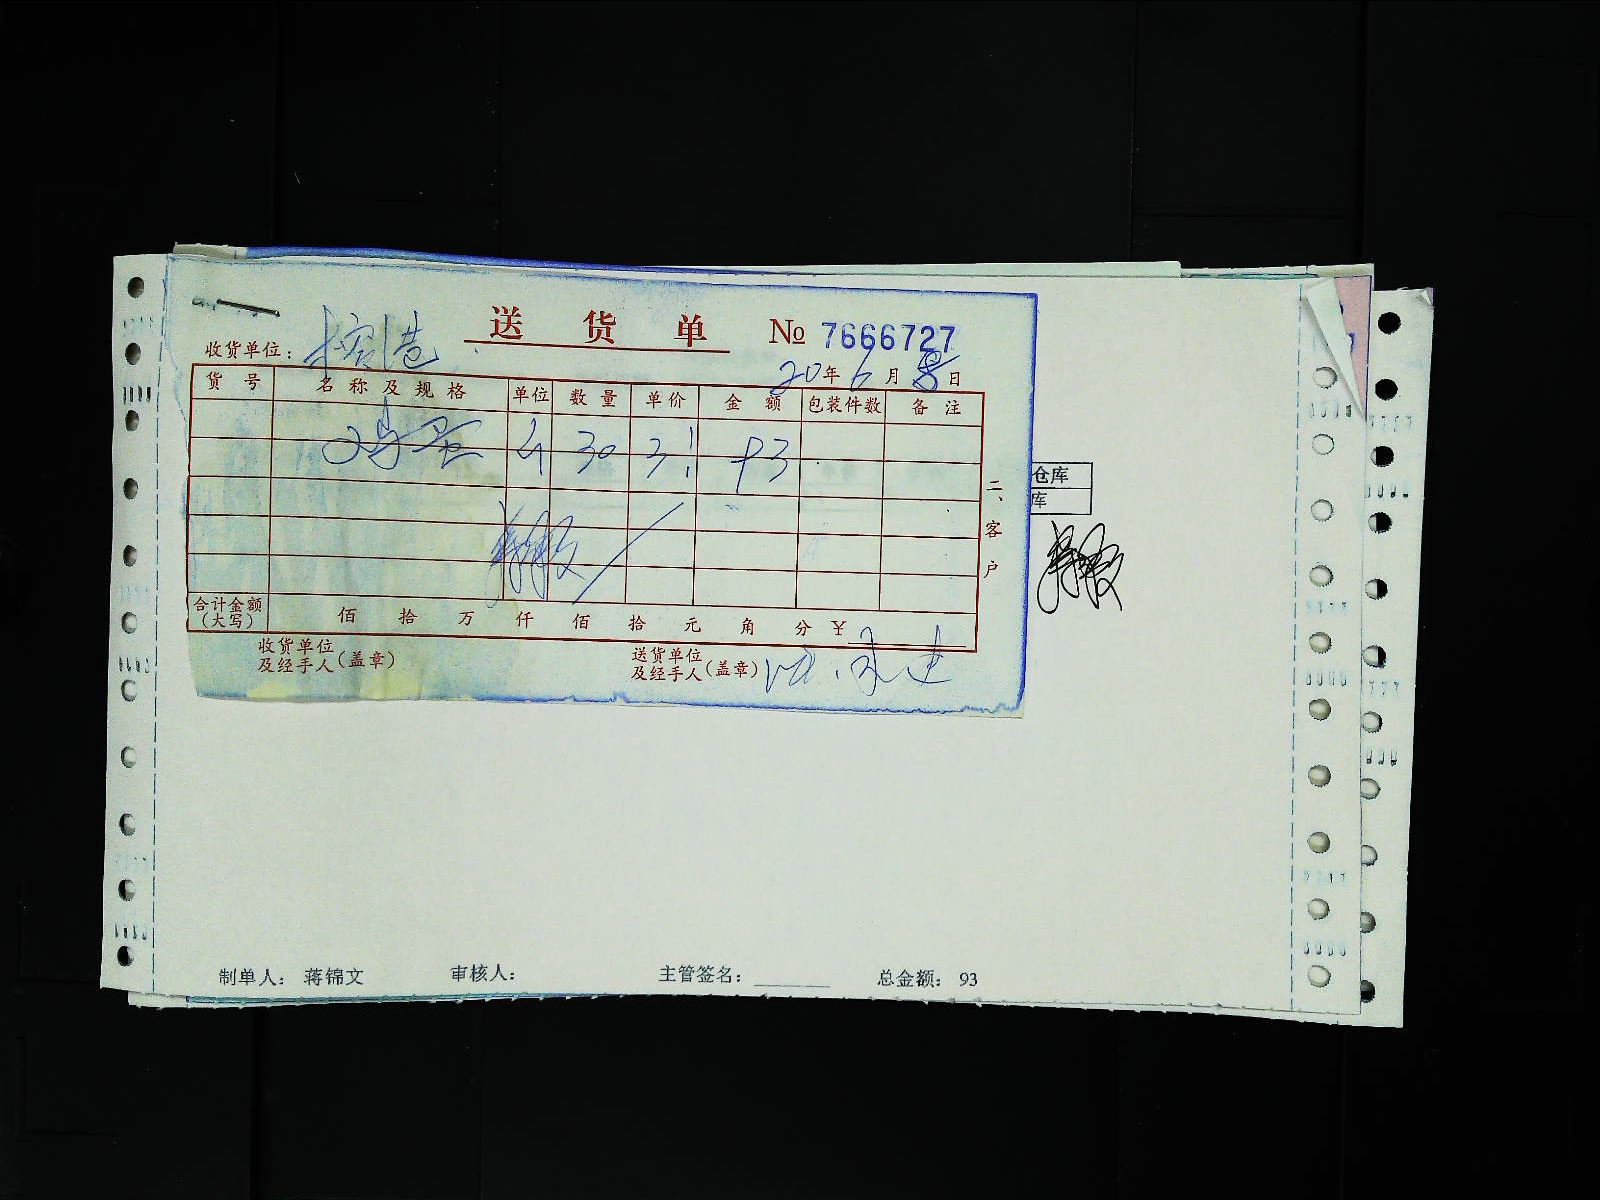 送货单 No 7666727
收货单位: 榕港
20年6月8日
货号 名称及规格 单位 数量 单价 金额 包装件数 备注
鸡蛋 斤 30 3.1 93
二、客户
仓库
库
合计金额(大写) 佰 拾 万 仟 佰 拾 元 角 分 ¥
收货单位及经手人(盖章)
送货单位及经手人(盖章)
制单人: 蒋锦文 审核人: 主管签名: 总金额: 93